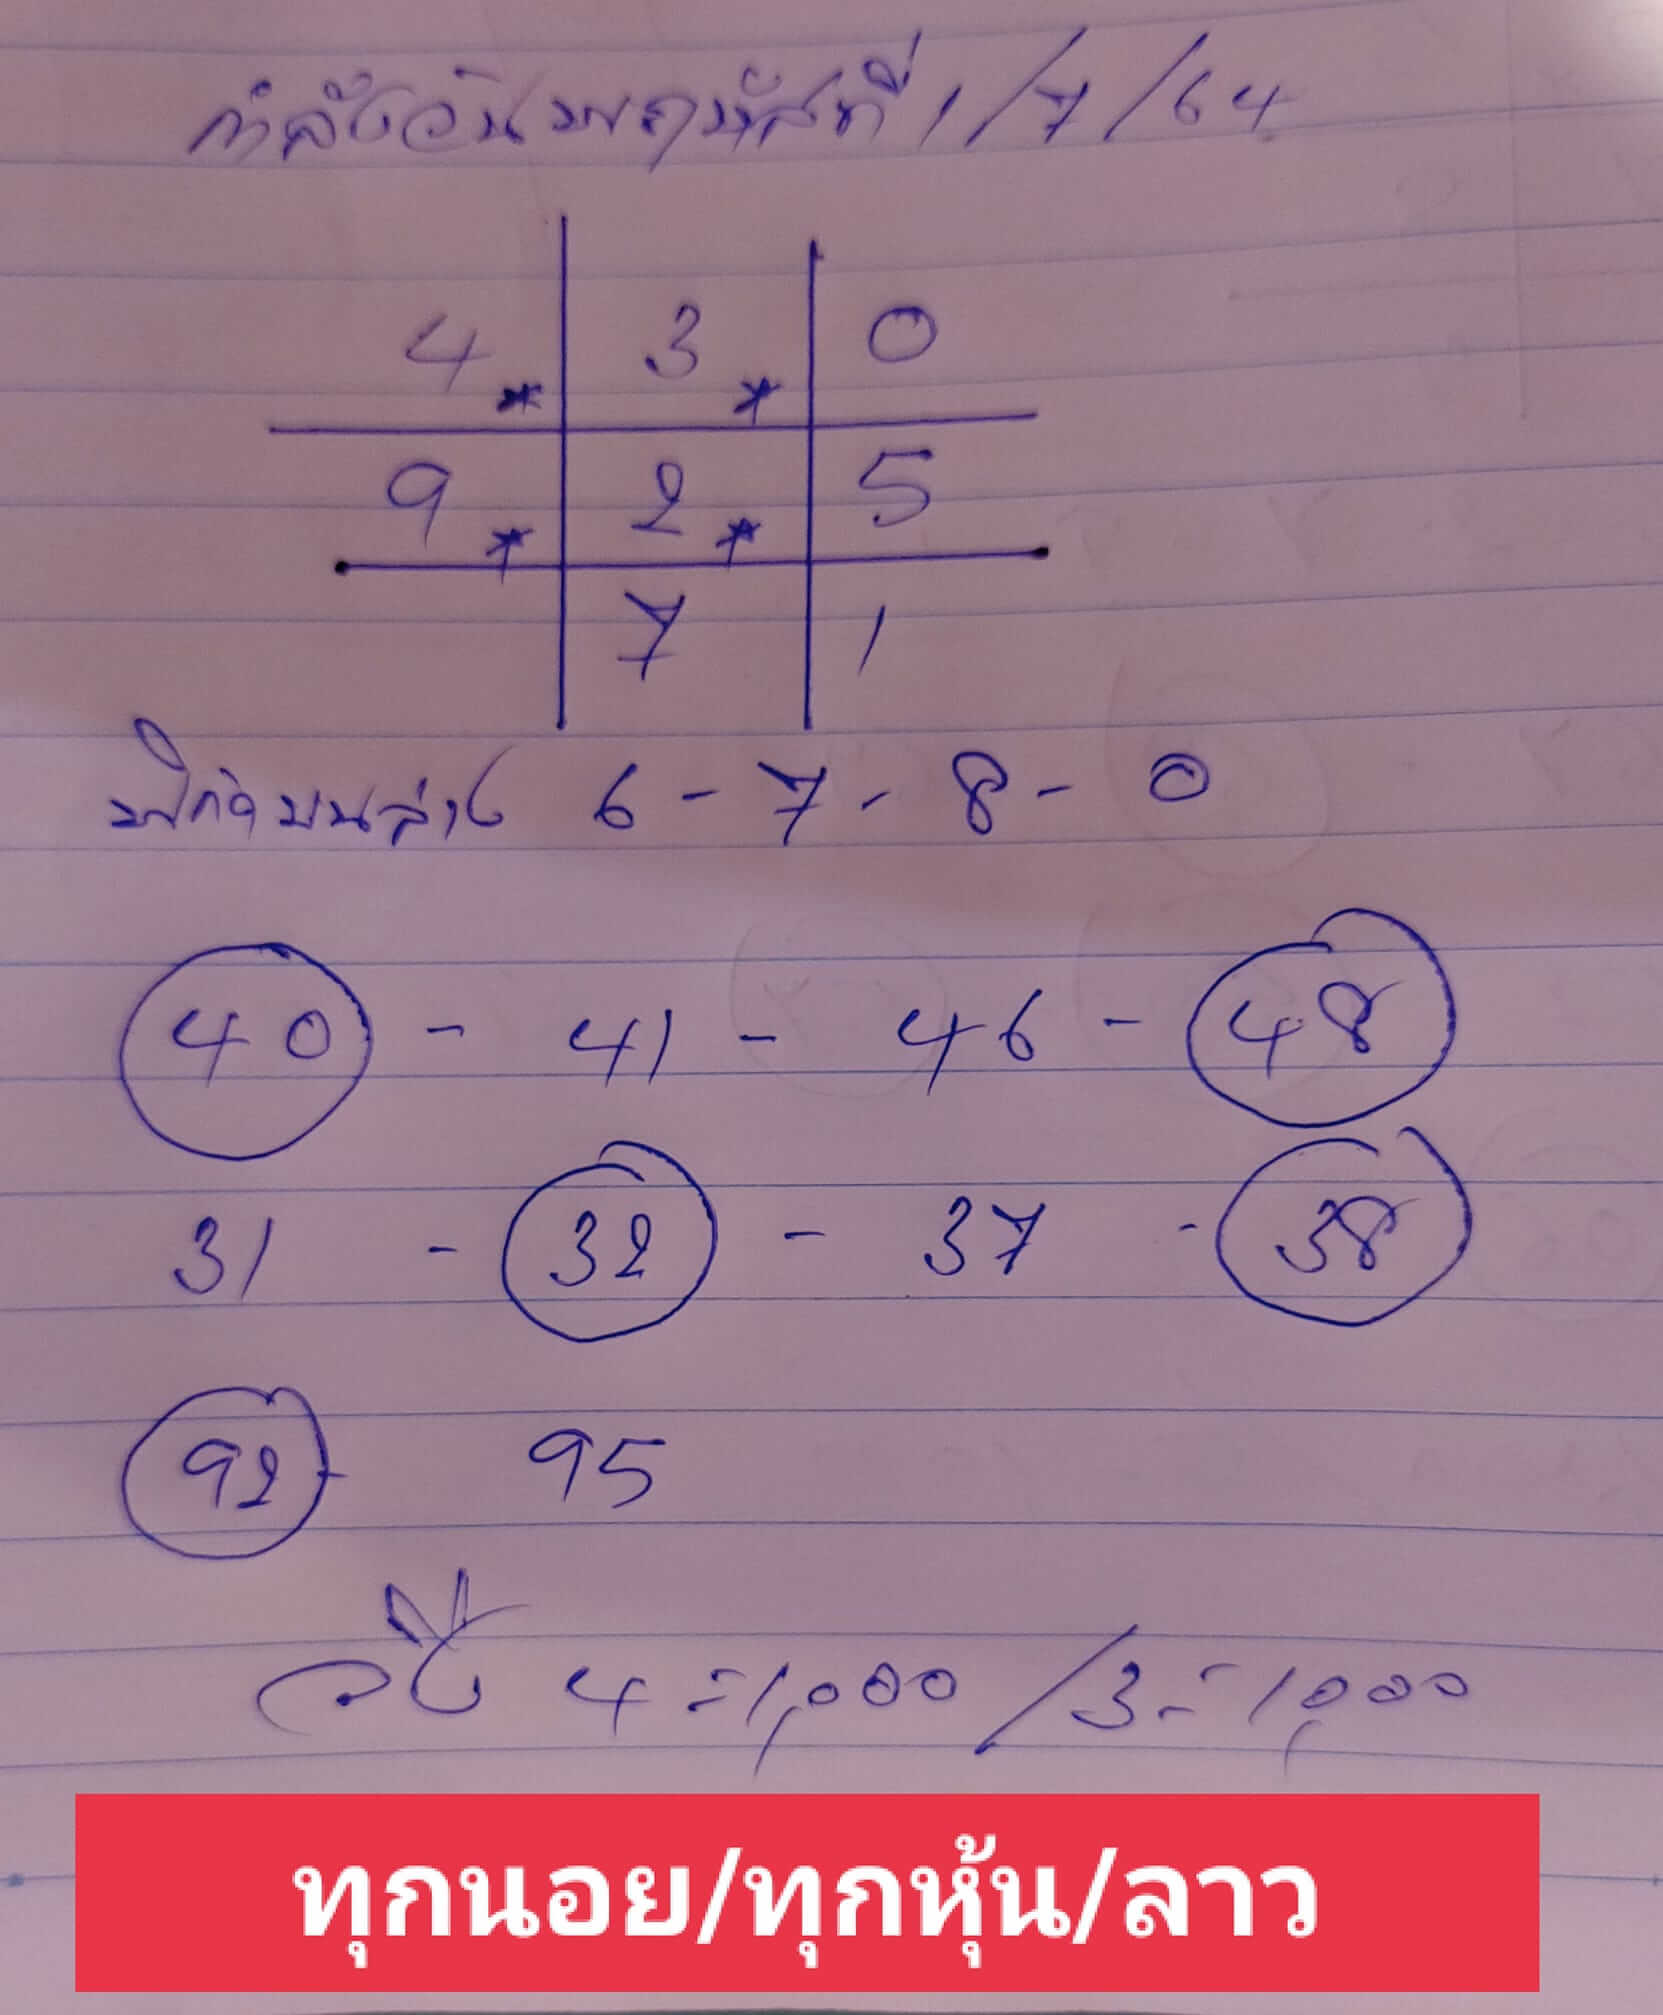 กำลังวันพฤหัสที่ 1/7/64
4* 3* 0
9* 2* 5
7 1
พิกัดบนล่าง 6-7-8-0
40 - 41 - 46 - 48
31 - 32 - 37 - 38
92 - 95
4 = 1,000 / 3 = 1,000
ทุกนอย/ทุกหุ้น/ลาว